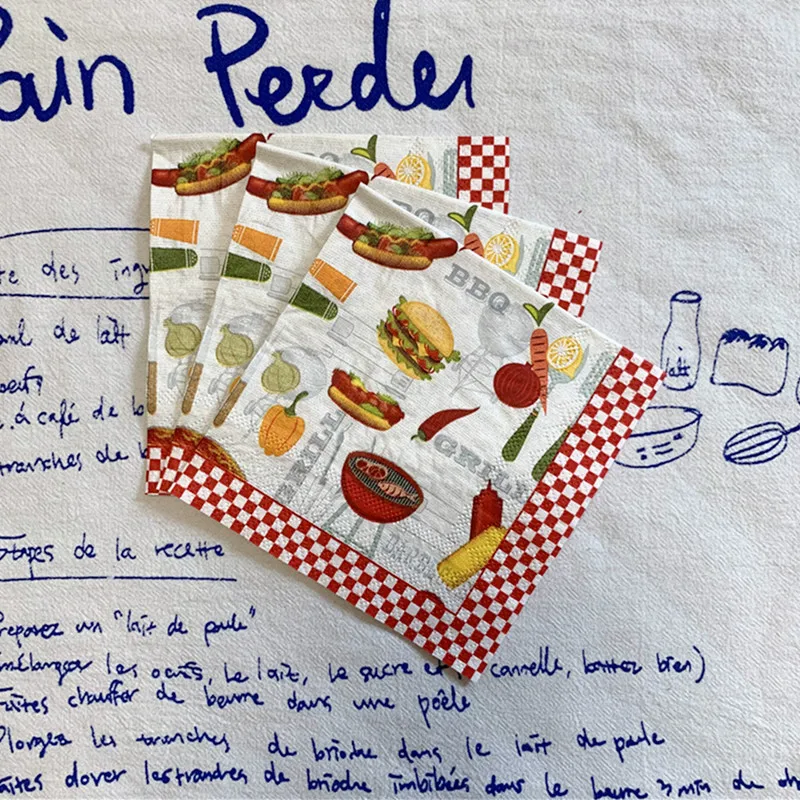 Pain Perdu
te des ing
ml de lait
oeufs
à café de b
tranches de b
lait
BBQ
BBQ
BBQ
GRILL
GRILL
Etapes de la recette
Preparez un "lait de poule"
(mélangez les oeufs, le lait, le sucre et cannelle, battez bien)
Faites chauffer de beurre dans une poêle
Plongez les tranches de brioche dans le lait de poule
Faites dorer les tranches de brioche imbibées dans le beurre 3 min de ch